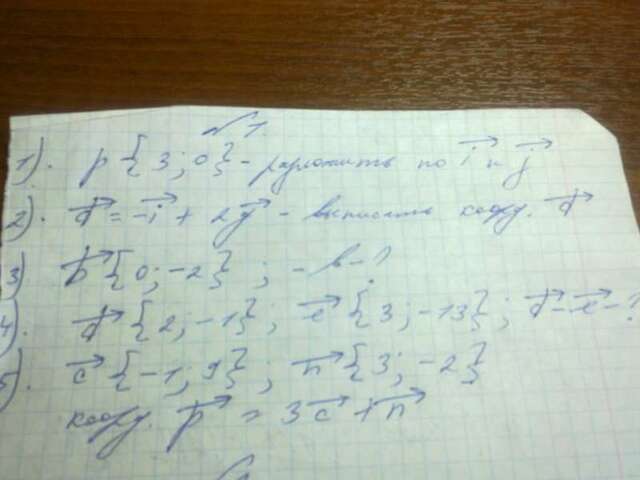 № 1.
1). p {3; 0} - разложить по i и j
2). d = -i + 2j - выписать коорд. d
3) b {0; -2} ; - b - ?
4). d {2; -1} ; e {3; -13} ; d - e - ?
5). c {-1; 9} ; n {3; -2}
коорд. p = 3c + n